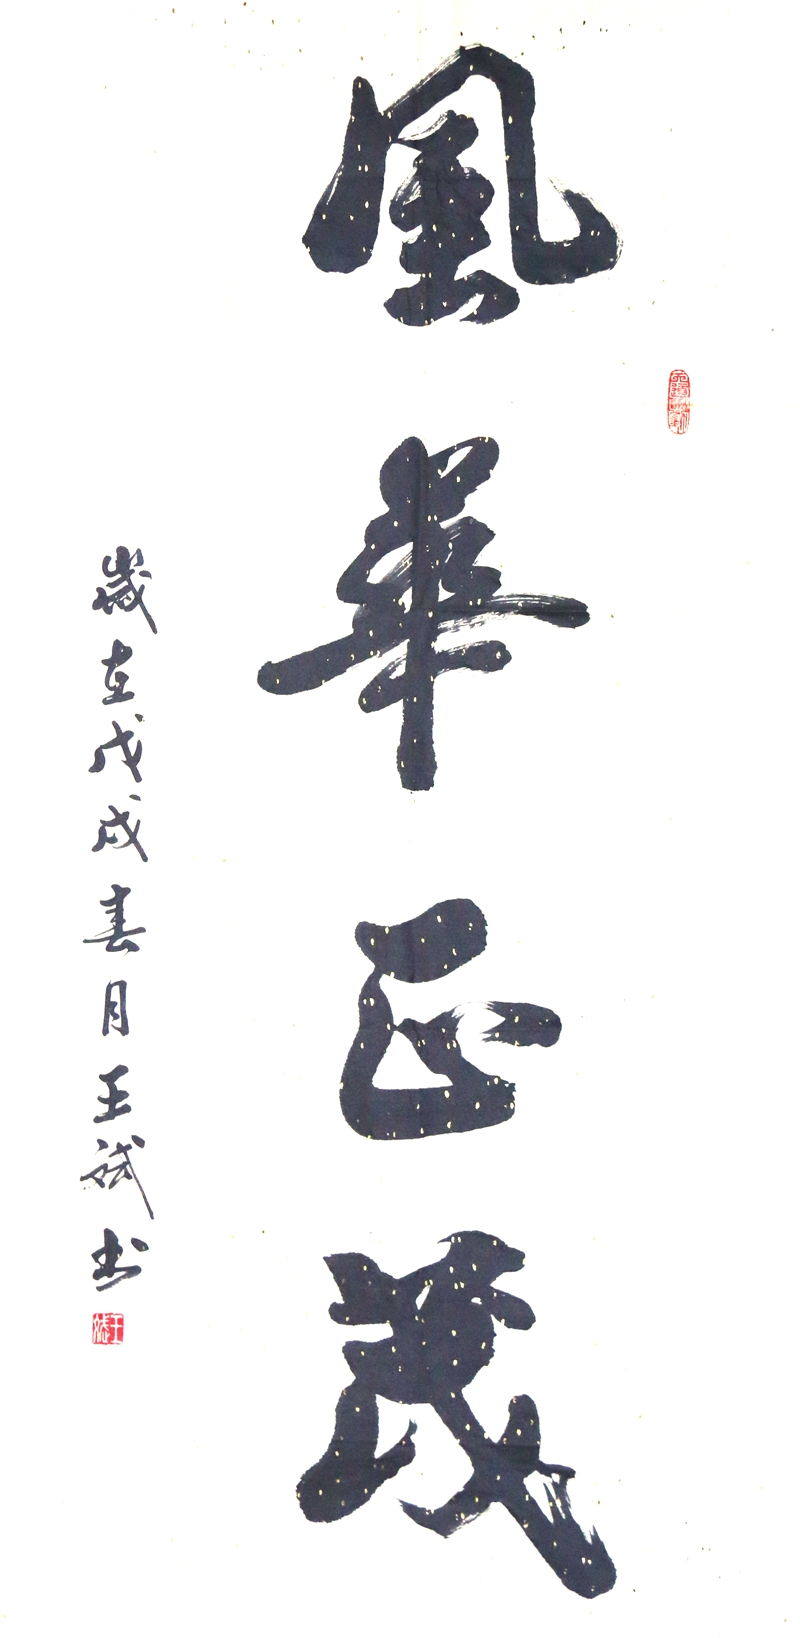 風華正茂
歲在戊戌春月王斌书
王斌